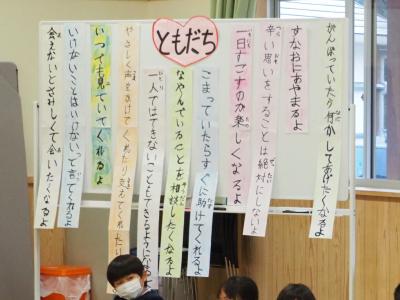 ともだち
がんばっていたら何かしてあげたくなるよ
すなおにあやまるよ
辛い思いをすることは絶対にしないよ
一日すごすのが楽しくなるよ
こまっていたらすぐに助けてくれるよ
なやんでいることを相談したくなるよ
一人ではできないこともできるようになるよ
やさしく声をかけてくれたり支えてくれたり
いつでも見ていてくれるよ
いけないことはいけないって言ってくれるよ
会えないとさみしくて会いたくなるよ